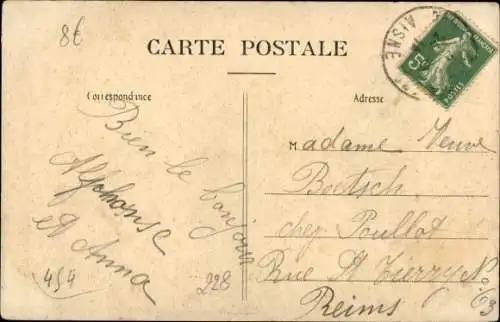 8€
CARTE POSTALE
Correspondance
Adresse
AISNE
5c
POSTES
Bien le bonjour
Alphonse
et Anna
Madame Veuve
Boetsch
chez Poullot
Rue St Tierry No 63
Reims
454
228